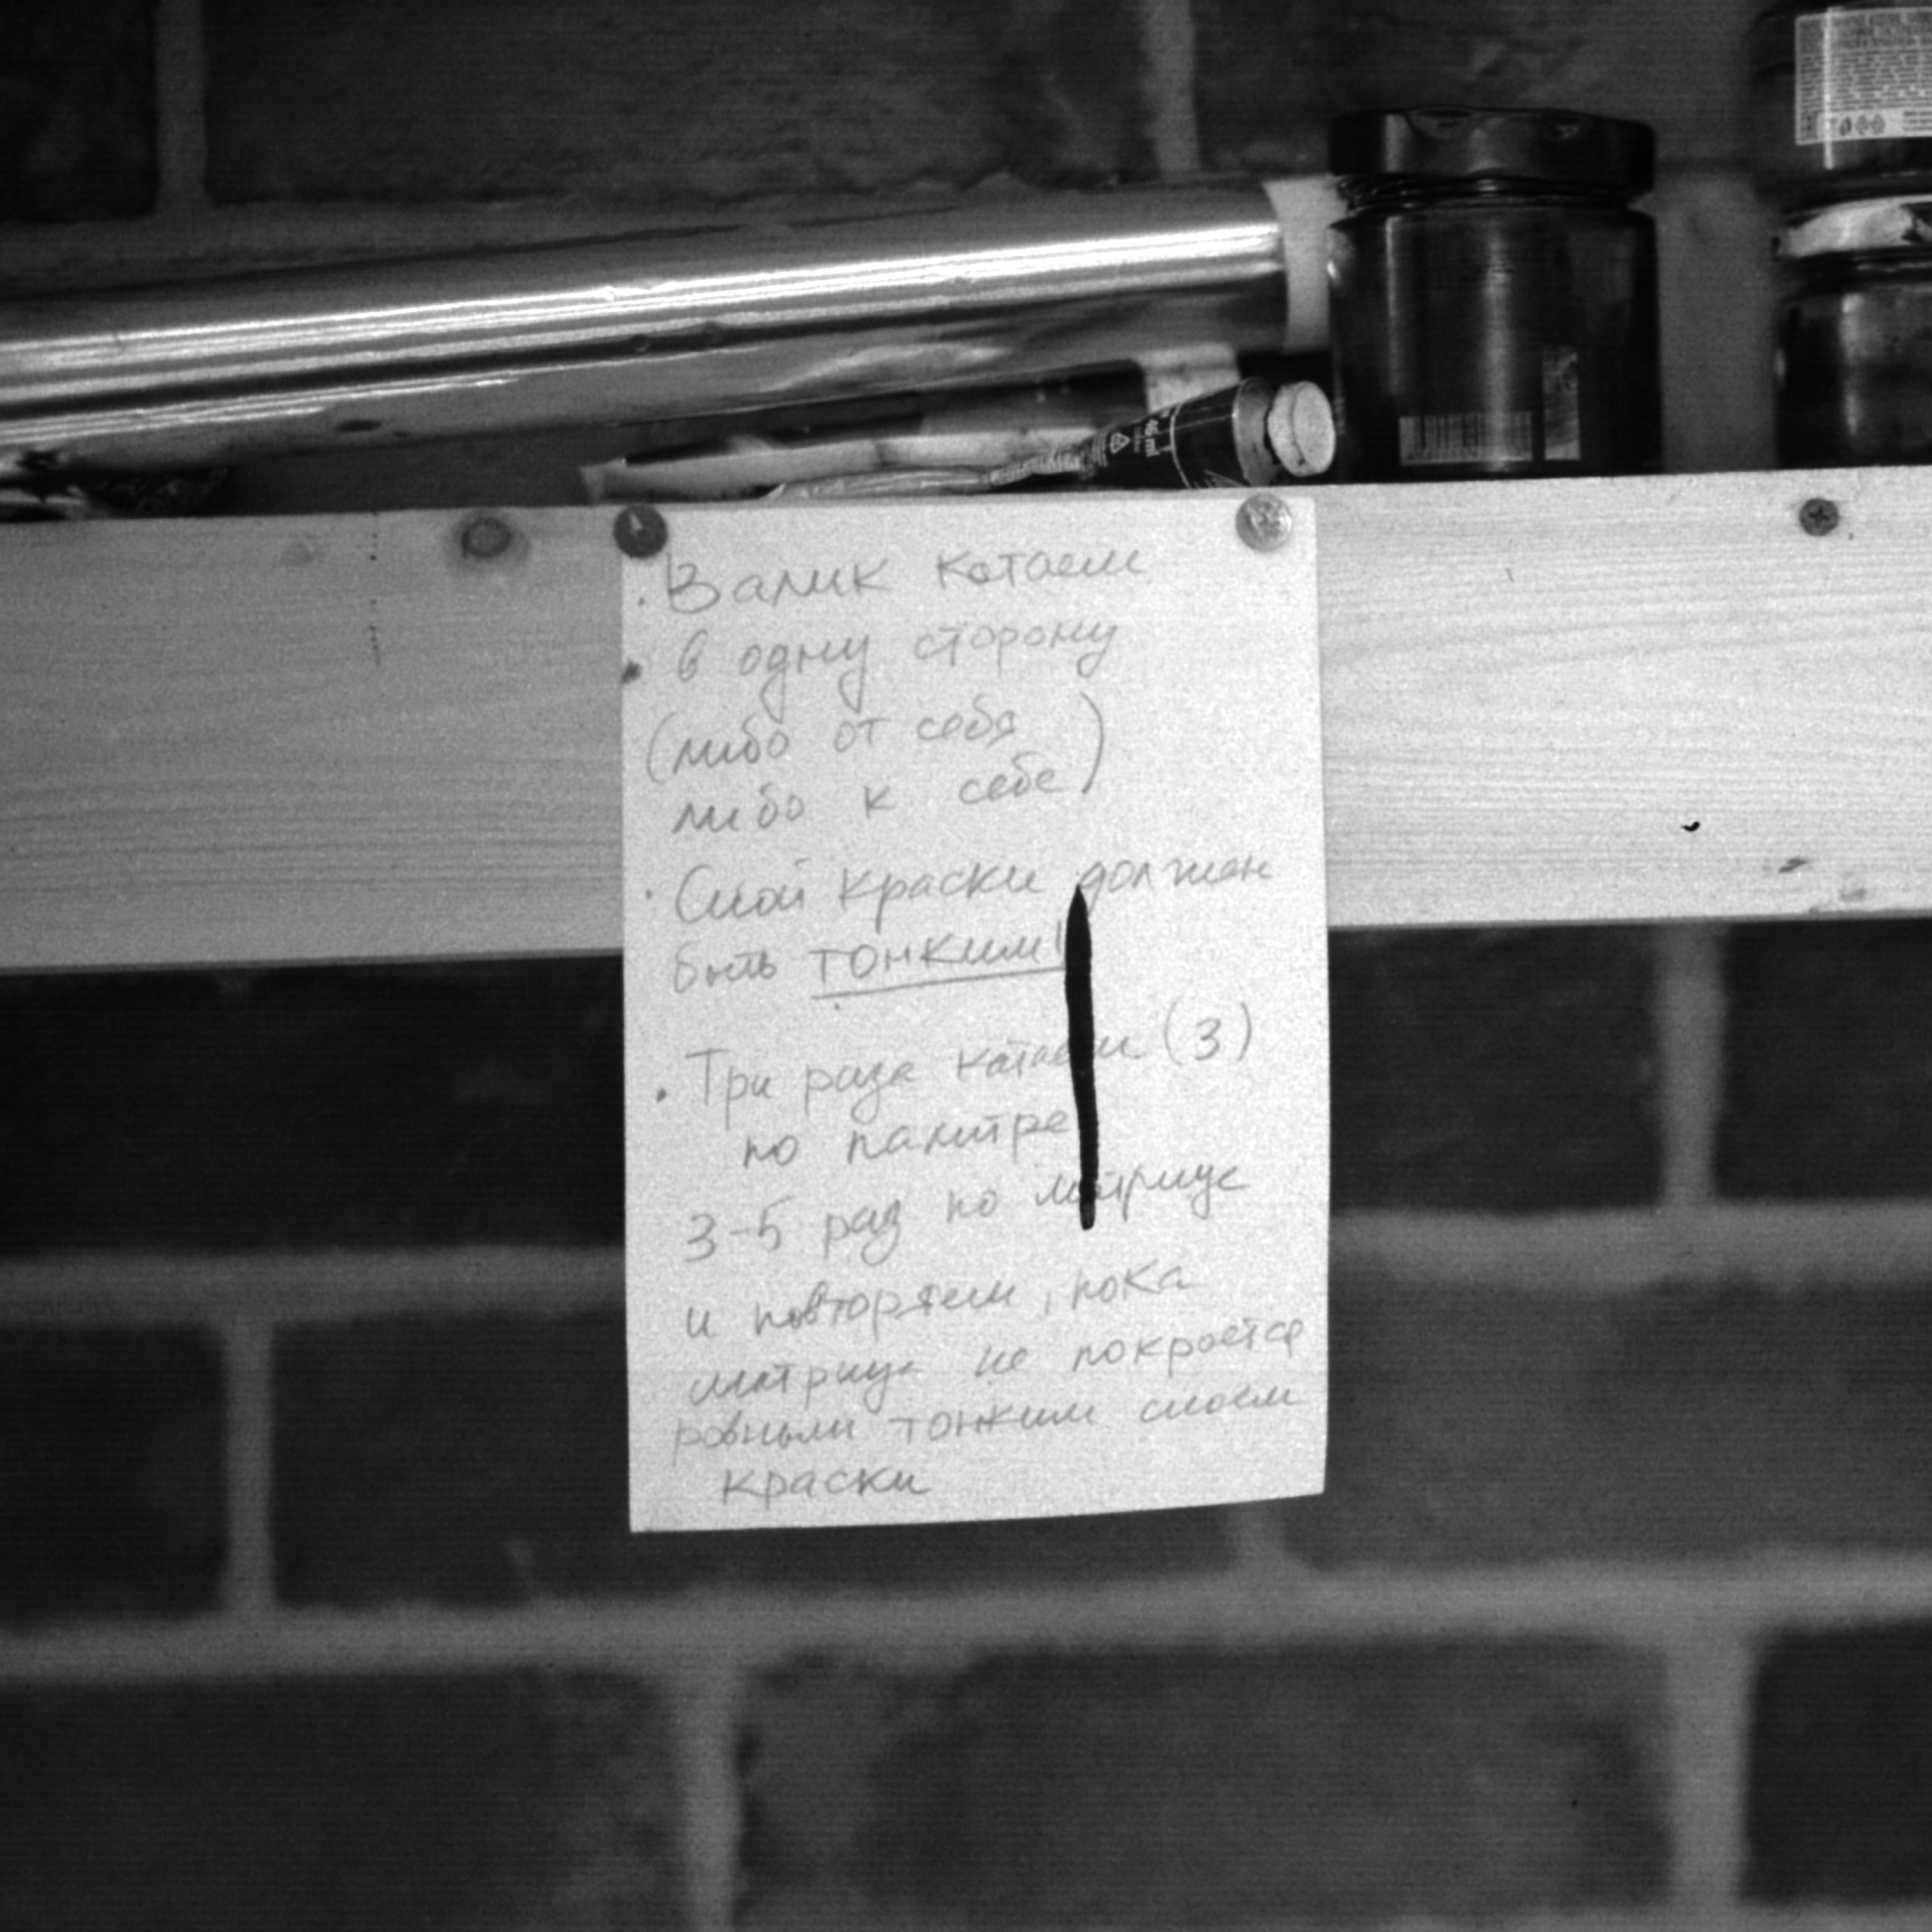 · Валик катаем
в одну сторону
(либо от себя
либо к себе)
· Слой краски должен
быть тонким!
· Три раза катаем (3)
по палитре
3-5 раз по матрице
и повторяем, пока
матрица не покроется
ровным тонким слоем
краски